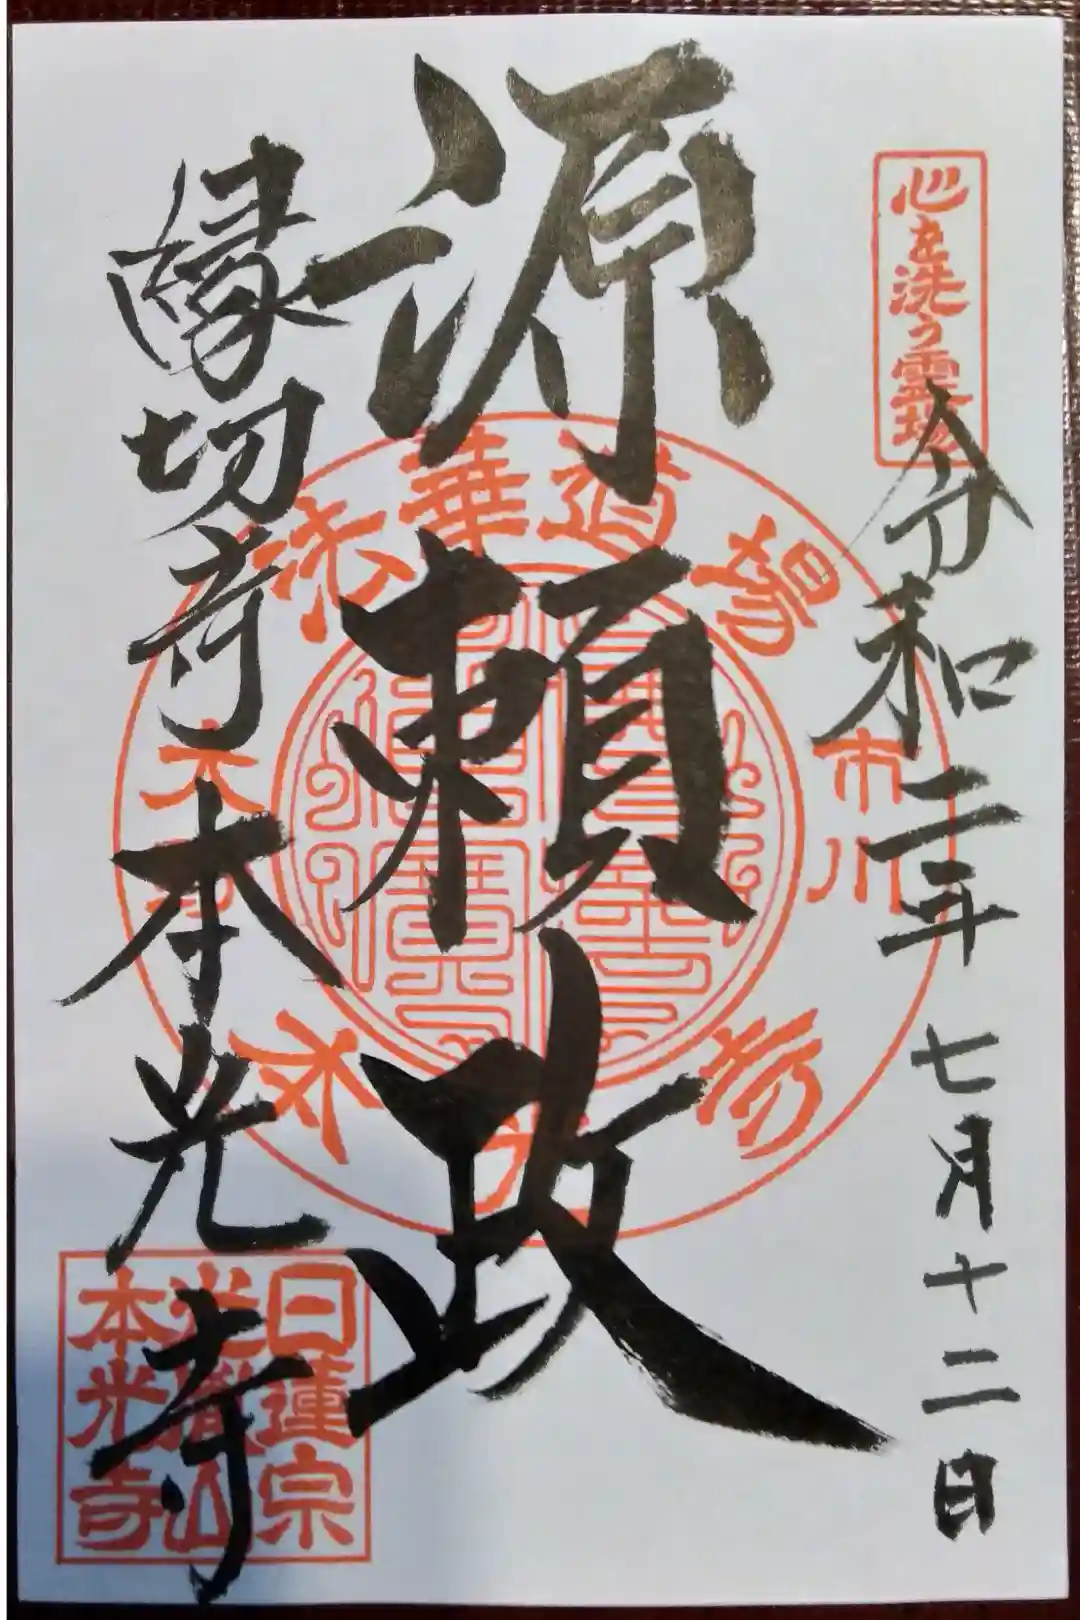 心を洗う霊場
令和二年七月十二日
源頼政
縁切寺本光寺
法華道場
市川
大野
日蓮宗
光胤山
本光寺